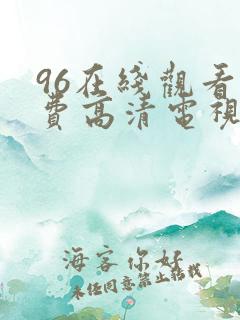 96在綫觀看
費高清電視
海客你好
未经同意禁止转载